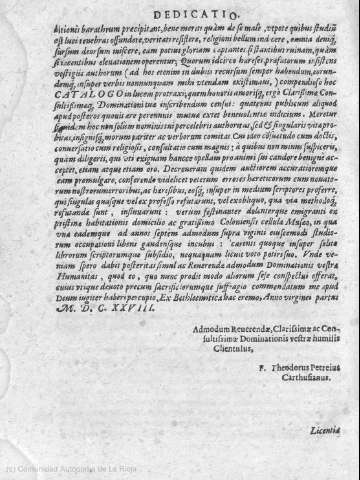 DEDICATIO.
ditionis barathrum precipitant, bene merer: quàm de se male, vtpote quibus studiũ
est luci tenebras offundere, veritati resistere, religioni bellum indicere, omnia deniq́;
sursum deorsum miscere, eam potius gloriam captantes: si stantibus ruinam, quàm
si iacentibus eleuationem operentur: Quorum idcirco haereses profaturam
vestigiis authorum (ad hos etenim in dubiis recursum semper habendum, eorun-
demq́; insuper verbis nonnunquam vtendum existimans) compendiosè hoc
CATALOGO in lucem protraxi; quem honoris amorisq́; ergo Clarissime Con-
sultissimeq́; Dominationi tuae inscribendum censui: quatenus publicum aliquod
apud posteros quouis aere perennius mutua extet beneuolentiae indicium. Meretur
siquidem hoc non solùm nominis tui percelebris authoritas, sed & singularis vitae pro-
bitas, insignisq́; morum pariter ac verborum comitas: Cum ideo obuiandi cum doctis,
conuersatio cum religiosis, consultatio cum magnis: à quibus non minus suspiceris,
quàm diligeris, qui vti exiguam hancce opellam pro animi sui candore benignè ac-
ceptet, etiam atque etiam oro. Decreueram quidem auctiorem accuratioremque
eam promulgare, conferendo videlicet veterum errores haereticorum cum nouato-
rum nostrorum erroribus, ac haeresibus, eosq́; insuper in medium scriptores proferre,
qui singulas quasque vel ex professo refutarunt, vel ex obliquo, qua via methodoq́;
refutanda sunt, insinuarunt: verùm festinanter dolenterque emigranti ex
pristina habitationis domicilio ac gratissimo Coloniensis cellula Musaeo, in qua
vna eademque ad annos septem admodum supra viginti eiuscemodi studio-
rum occupationi libens gaudensque incubui: carenti quoque insuper solito
librorum scriptorumque subsidio, nequaquam licuit voto potiri suo. Vnde ve-
niam spero dabit posteritas simul ac Reuerenda admodum Dominationis vestrae
Humanitas, quod eo, quo nunc prodit modo aliorum sese conspectui offerat,
cuius vtique deuoto precum sacrificiorumque suffragio commendatum me apud
Deum iugiter haberi percupio. Ex Bethleemitica hac eremo, Anno virginei partus
M. D. C. XXVIII.
Admodum Reuerendæ, Clarissimæ ac Con-
sultissimæ Dominationis vestræ humilis
Clientulus,
F. Theodorus Petreius
Carthusianus.
Licentia
(c) Comunidad Autónoma de La Rioja